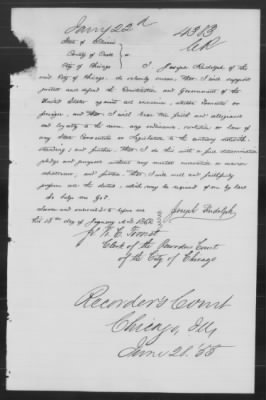 Jany 22d
4313
State of Illinois
County of Cook } ss
City of Chicago
I Joseph Rudolph of the
said City of Chicago, do solemnly swear, that I will support
protect and defend the Constitution and Government of the
United States against all enemies, whether domestic or
foreign, and that I will bear true faith and allegiance
and loyalty to the same, any ordinance, resolution or law of
any State Convention or Legislature to the contrary notwith-
standing; and further, that I do this with a full determination
pledge and purpose without any mental reservation or evasion
whatsoever; and further, that I will well and faithfully
perform all the duties, which may be required of me by law
So help me God.
Sworn and subscribed to before me
this 15th day of January A.D. 1868
Joseph Rudolph
Clerk of the Recorders Court
of the City of Chicago
Recorder's Court
Chicago, Ills,